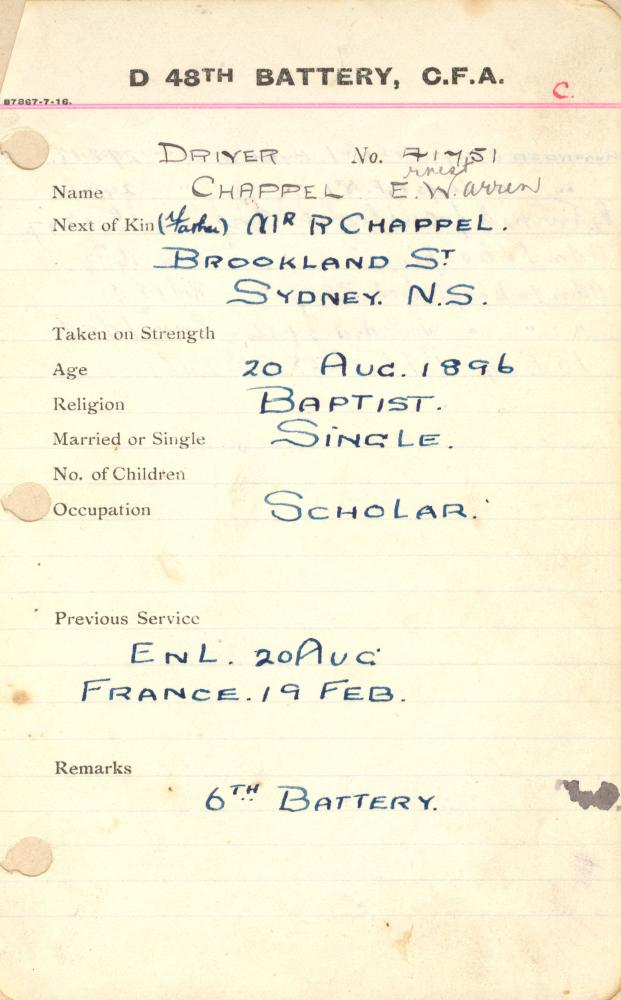 D 48TH BATTERY, C.F.A.
C.
87867-7-16.
DRIVER No.
Name CHAPPEL E. Warren
rnest
Next of Kin (Father) MR R CHAPPEL.
BROOKLAND ST
SYDNEY. N.S.
Taken on Strength
Age 20 AUG. 1896
Religion BAPTIST.
Married or Single SINGLE.
No. of Children
Occupation SCHOLAR.
Previous Service
ENL. 20 AUG
FRANCE. 19 FEB.
Remarks
6TH BATTERY.